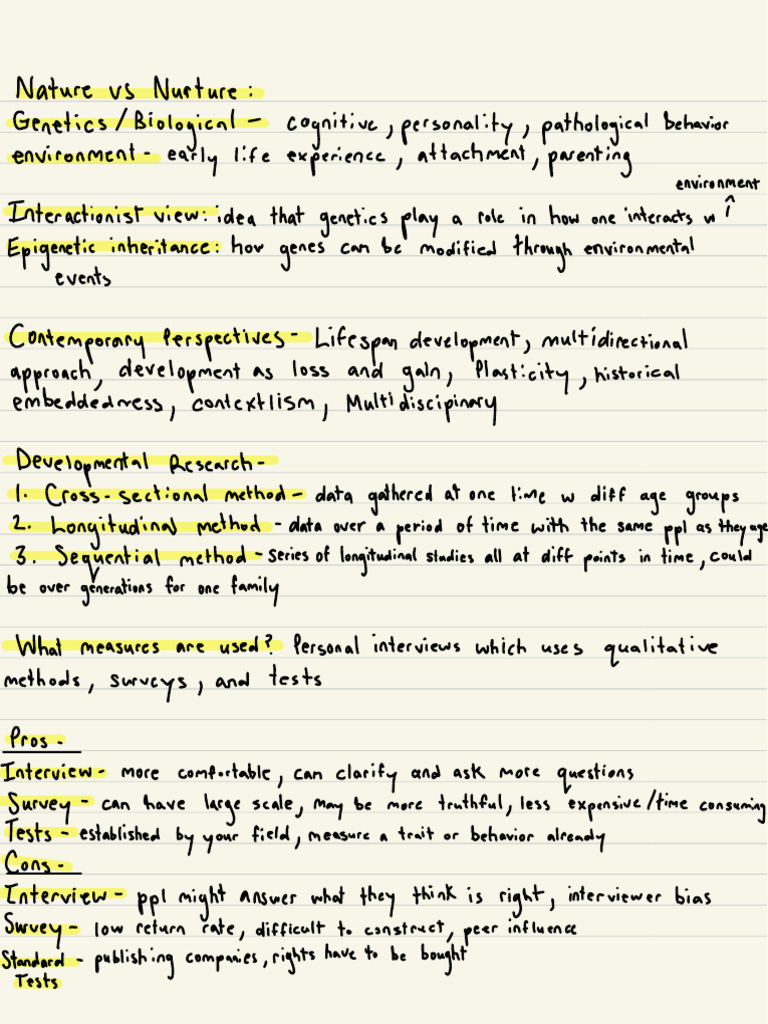 Nature vs Nurture:
Genetics/Biological - cognitive, personality, pathological behavior
environment - early life experience, attachment, parenting
environment
Interactionist view: idea that genetics play a role in how one interacts w ^
Epigenetic inheritance: how genes can be modified through environmental
events
Contemporary Perspectives - Lifespan development, multidirectional
approach, development as loss and gain, Plasticity, historical
embeddedness, contextlism, Multidiscipinary
Developmental Research -
1. Cross-sectional method - data gathered at one time w diff age groups
2. Longitudinal method - data over a period of time with the same ppl as they age
3. Sequential method - series of longitudinal studies all at diff points in time, could
be over generations for one family
What measures are used? Personal interviews which uses qualitative
methods, surveys, and tests
Pros -
Interview - more comfortable, can clarify and ask more questions
Survey - can have large scale, may be more truthful, less expensive/time consuming
Tests - established by your field, measure a trait or behavior already
Cons -
Interview - ppl might answer what they think is right, interviewer bias
Survey - low return rate, difficult to construct, peer influence
Standard - publishing companies, rights have to be bought
Tests